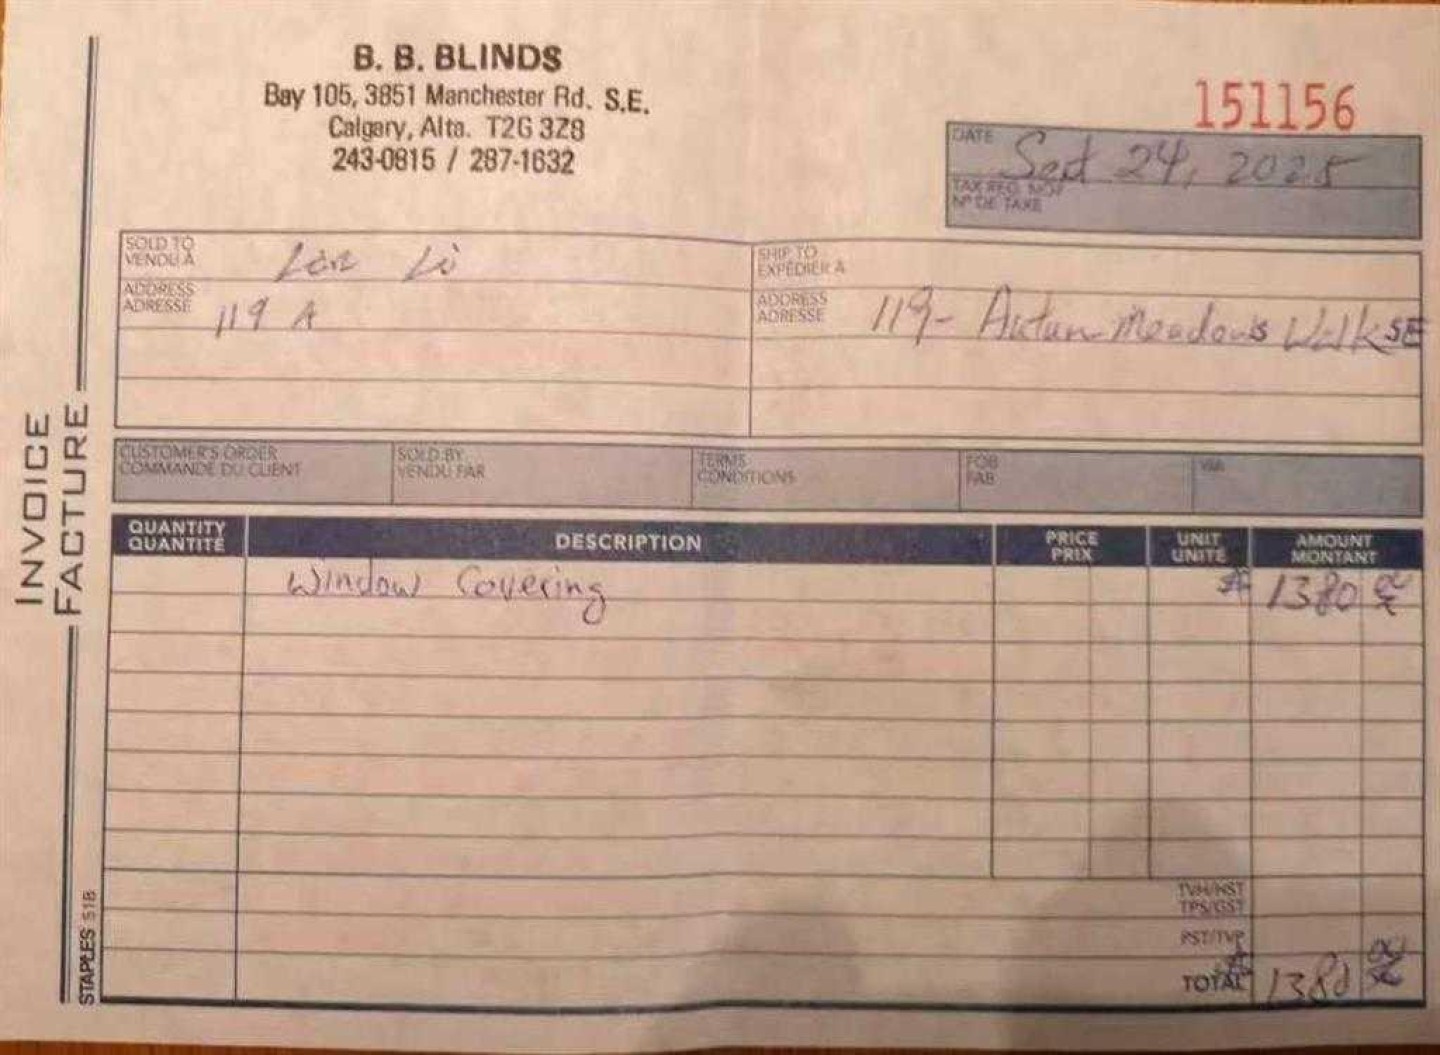 B. B. BLINDS
Bay 105, 3851 Manchester Rd. S.E.
Calgary, Alta. T2G 3Z8
243-0815 / 287-1632
151156
DATE Sept 24, 2025
TAX REG. NO.
Nº DE TAXE
INVOICE
FACTURE
SOLD TO
VENDU À
Li
ADDRESS
ADRESSE
119 A
SHIP TO
EXPÉDIER À
ADDRESS
ADRESSE
119- Autum Meadows Walk SE
CUSTOMER'S ORDER
COMMANDE DU CLIENT
SOLD BY
VENDU PAR
TERMS
CONDITIONS
FOB
FAB
VIA
QUANTITY
QUANTITÉ
DESCRIPTION
PRICE
PRIX
UNIT
UNITÉ
AMOUNT
MONTANT
Window Covering 1380 00
TVH/HST
TPS/GST
PST/TVP
TOTAL 1380 00
STAPLES 51B